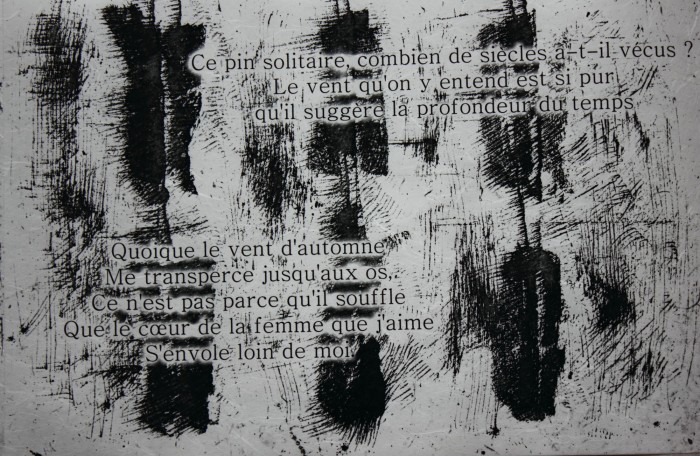 Ce pin solitaire, combien de siècles a-t-il vécus ?
Le vent qu'on y entend est si pur
qu'il suggère la profondeur du temps
Quoique le vent d'automne
Me transperce jusqu'aux os,
Ce n'est pas parce qu'il souffle
Que le cœur de la femme que j'aime
S'envole loin de moi.